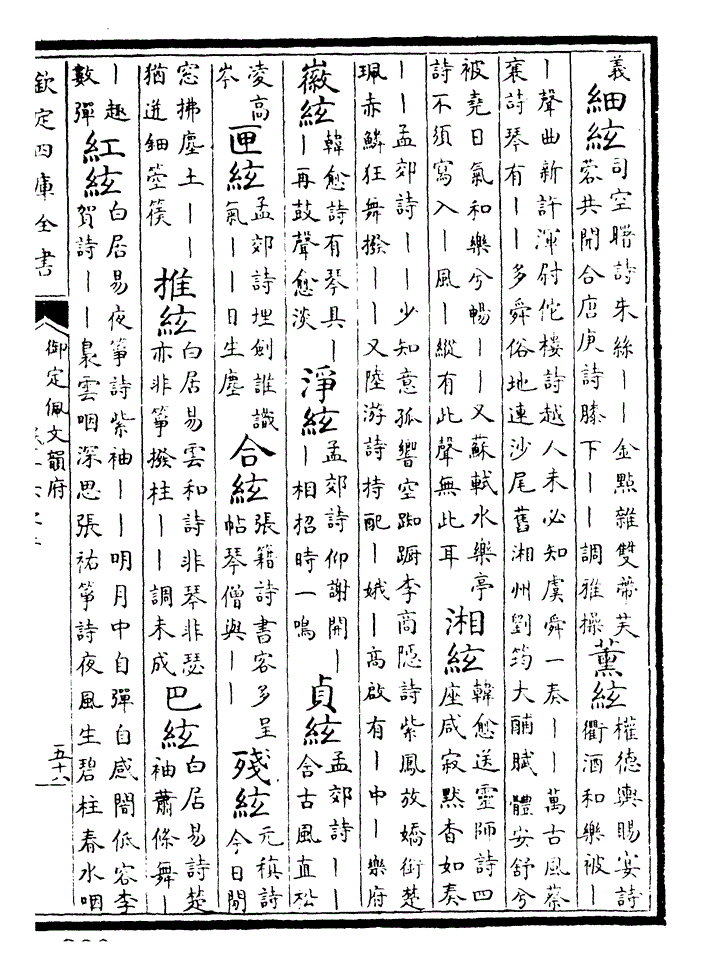 義細絃司空曙詩朱絲——金點雜雙帶芙
蓉共開合唐庚詩膝下——調雅操薰絃權德輿賜宴詩
衢酒和樂被—
—聲曲新許渾尉佗樓詩越人未必知虞舜一奏——萬古風蔡
襄詩琴有——多舜俗地連沙尾舊湘州劉筠大酺賦體安舒兮
被堯日氣和樂兮暢——又蘇軾水樂亭
詩不須寫入—風—縱有此聲無此耳湘絃韓愈送靈師詩四
座咸寂默杳如奏
——孟郊詩——少知意孤響空踟蹰李商隱詩紫鳳放嬌銜楚
珮赤鱗狂舞撥——又陸游詩持配—娥—高啟有—中—樂府
徽絃韓愈詩有琴具—
—再鼓聲愈淡淨絃孟郊詩仰謝開—
—相招時一鳴貞絃孟郊詩——
含古風直松
凌高
岑匣絃孟郊詩埋劍誰識
氣——日生塵合絃張籍詩書客多呈
帖琴僧與——殘絃元稹詩
今日閒
窓拂塵土———
猶迸鈿箜篌推絃白居易雲和詩非琴非瑟
亦非箏撥柱——調未成巴絃白居易詩楚
袖蕭條舞—
—趣
數彈紅絃白居易夜箏詩紫袖——明月中自彈自感闇低容李
賀詩——裊雲咽深思張祐箏詩夜風生碧柱春水咽
欽定四庫全書
御定佩文韻府
五十八